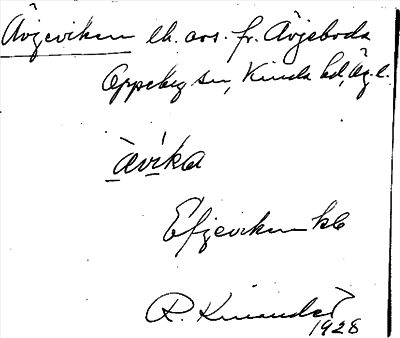 Ävjeviken lh. avs. fr. Ävjeboda
Oppeby sn, Kinda hd, Ög. l.
àvíka
Efjeviken kb
R. Kinander
1928